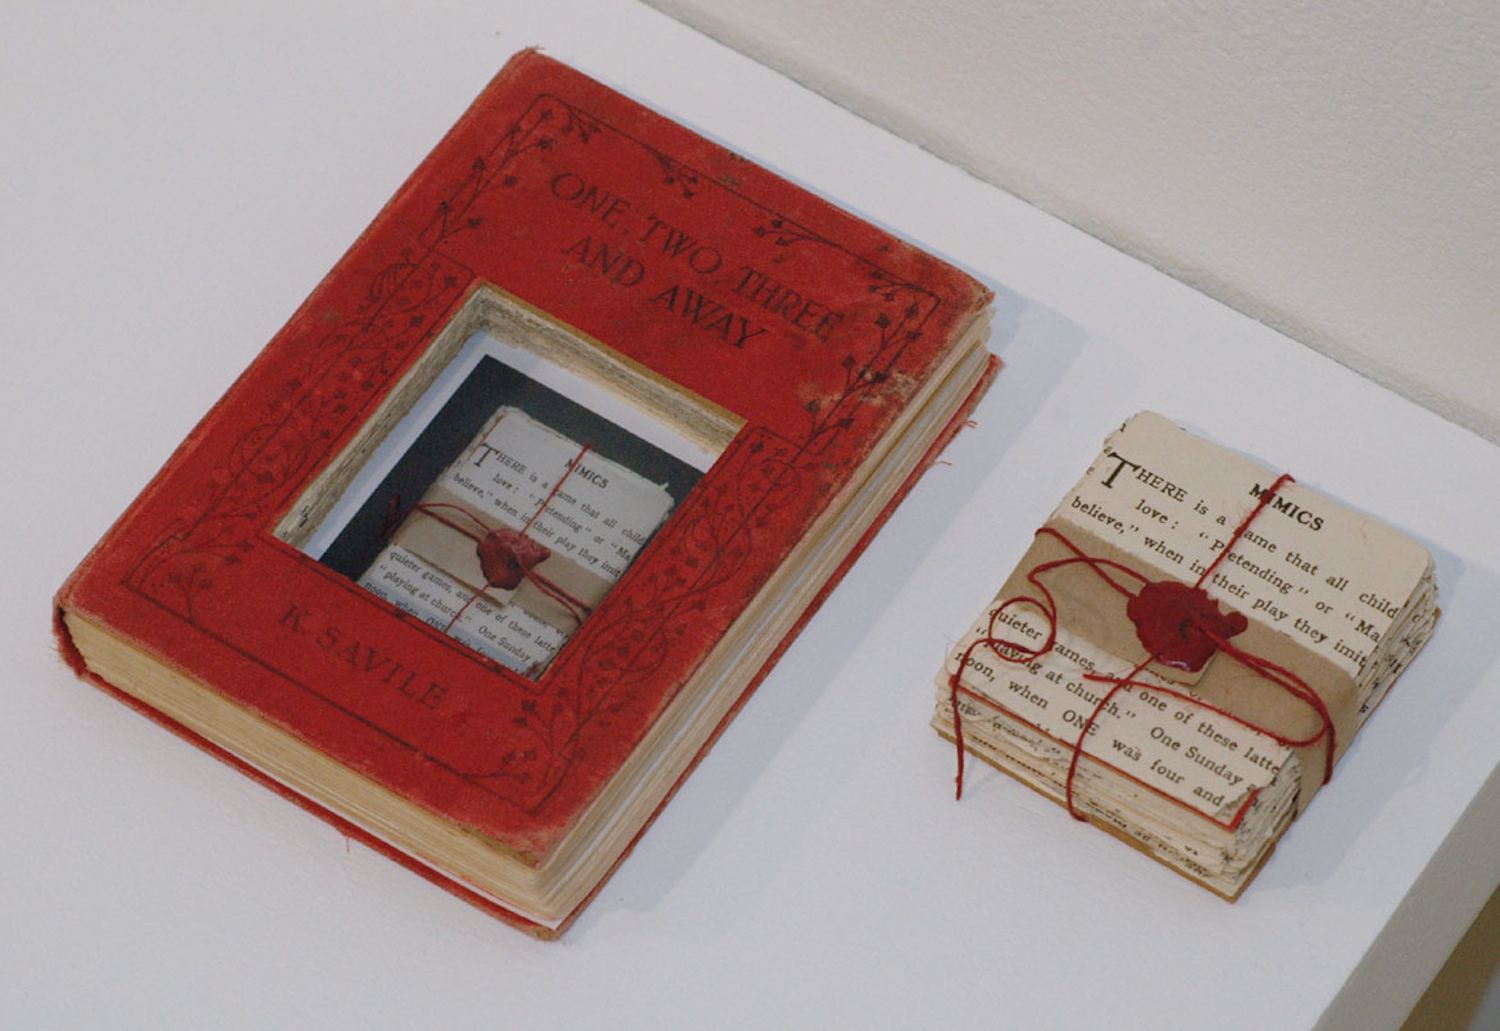 ONE, TWO, THREE
AND AWAY
K. SAVILE
MIMICS
THERE is a game that all child
love: "Pretending" or "Ma
believe," when in their play they imit
quieter games, and one of these latte
"playing at church." One Sunday
noon, when ONE
MIMICS
THERE is a game that all child
love: "Pretending" or "Ma
believe," when in their play they imit
quieter games, and one of these latte
"playing at church." One Sunday
noon, when ONE was four and